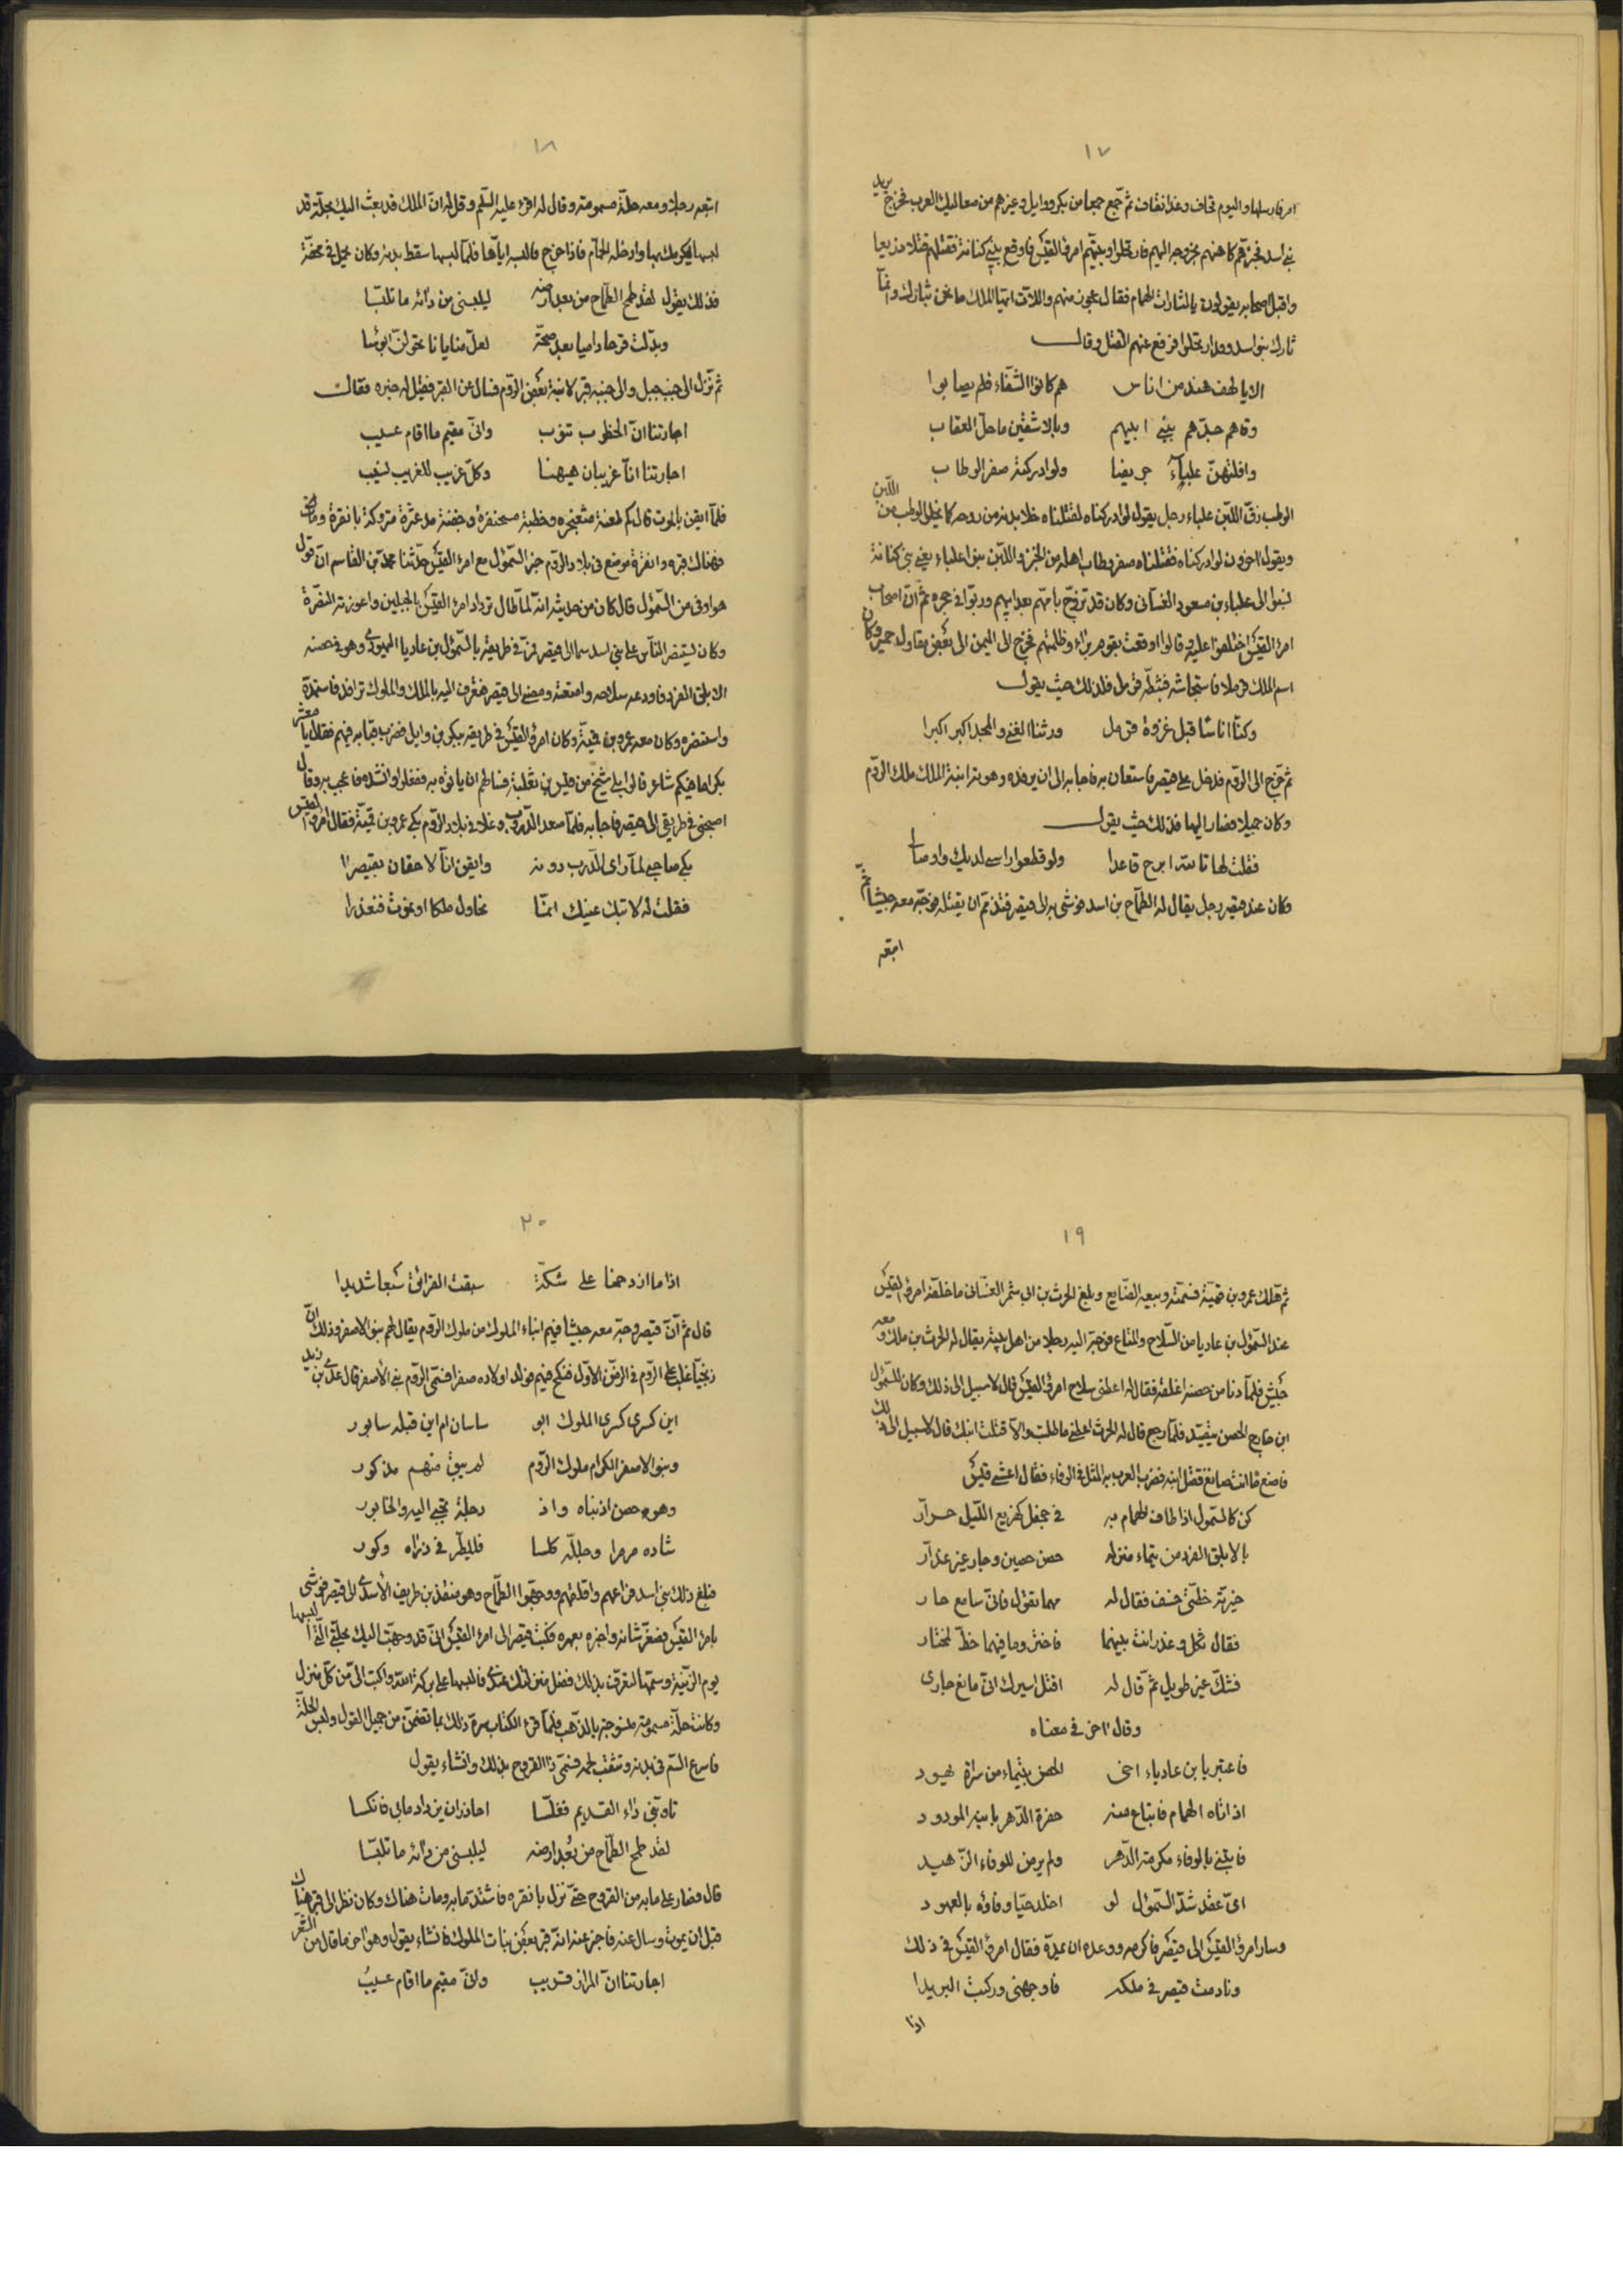 ١٧
امر فارسلها واليوم قحاف وغدا نقاف ثم جمع جمعا من بكر ووايل وغيرهم من صعاليك العرب فخرج يريد
بني اسد فخبرهم كاهنهم بخروجه اليهم فارتحلوا وبيتهم امرؤ القيس فاوقع ببني كنانة فقتلهم قتلا ذريعا
واقبل اصحابه يقولون يا لثارات الهمام فقالت عجوز منهم واللات ايها الملك ما نحن بثارك وانما
ثارك بنو اسد وقد ارتحلوا فرفع عنهم القتل وقال
الا يا لهف هند من اناس هم كانوا الشفاء فلم يصابوا
وقاهم جدهم ببني ابيهم وبالاشقين ما حل العقاب
وافلتهن علباء جريضا ولو ادركته صفر الوطاب
الوطب زق اللبن علباء رجل يقول لو ادركناه لقتلناه فخلا بدنه من روحه كما يخلى الوطب من اللبن
ويقول اخرون لو ادركناه فقتلناه صفر وطاب اهله من الخبز واللبن بنوا علباء يعني بني كنانة
نسبوا الى علباء بن مسعود الغساني وكان قد تزوج بامهم بعد ابيهم وربوا في حجره ثم ان اصحاب
امرئ القيس اختلفوا عليه وقالوا اوقعت بقوم برآء وظلمتهم فخرج الى اليمن الى بعض مقاول حمير وكان
اسم الملك قرملا فاستجاشه فثبطه قرمل فلذلك حيث يقول
وكنا اناسا قبل غزوة قرمل ورثنا الغنى والمجد اكبر اكبرا
ثم خرج الى الروم فدخل على قيصر فاستعان به فاجابه الى ان يرفده وهويته ابنة الملك ملك الروم
وكان جميلا فصار اليها فذلك حيث يقول
فقلت لها تالله ابرح قاعدا ولو قطعوا راسي لديك واوصالي
وكان عند قيصر رجل يقال له الطماح بن اسد فوشى به الى قيصر فتذمم ان يقتله فوجه معه جيشا ثم
اتبعه
١٨
اتبعه رجلا ومعه حلة مسمومة وقال له اقرئ عليه السلم وقل له ان الملك قد بعث اليك بحلة قد
لبسها ليكرمك بها وادخله الحمام فاذا خرج فالبسه اياها فلما لبسها سقط بدنه وكان يحمل في محفة
فذلك يقول لقد طمح الطماح من بعد ارضه ليلبسني من دائه ما تلبسا
وبدلت قرحا داميا بعد صحة لعل منايانا تحولن ابؤسا
ثم نزل الى جنب جبل والى جنبه قبر لابنة بعض الروم فسال عن القبر فقيل له خبره فقال
اجارتنا ان الخطوب تنوب واني مقيم ما اقام عسيب
اجارتنا انا غريبان هيهنا وكل غريب للغريب نسيب
فلما ايقن بالموت قال كم لمعنة مثعنجره وخطبة مسحنفرة وجفنة مدعثرة متروكة بانقرة ومات
فهناك قبره وانقرة موضع في بلاد الروم خبر السموئل مع امرئ القيس حدثنا محمد بن القاسم ان قول
هو اوفى من السموئل قال كان من حديثه انه لما طال ترداد امرئ القيس بالجبلين واعوزته النصرة
وكان يستنصر الناس على بني اسد سما الى قيصر فمر في طريقه بالسموئل بن عاديا اليهودي وهو في حصنه
الابلق الفرد فاودعه سلاحه وامتعته ومضى الى قيصر فتعرف اليه بالملك والملوك ترافد فاستمده
واستنصره وكان معه عمرو بن قميئة وكان امرؤ القيس في طريقه ببكر بن وايل فضرب قبابه فيهم فقال يا معشر
بكر اما فيكم شاعر قالوا بلى شيخ من قيس بن ثعلبة فسالهم ان ياتوه به ففعلوا وانشده فاعجب به وقال
اصحبني في طريقي الى قيصر فاجابه فلما صعد الدروب وغلا في بلاد الروم بكى عمرو بن قميئة فقال امرؤ القيس
بكى صاحبي لما راى الدرب دونه وايقن انا لاحقان بقيصرا
فقلت له لا تبك عينك انما نحاول ملكا او نموت فنعذرا
١٩
ثم هلك عمرو بن قميئة فسمته ربيعه الضايع وبلغ الحرث بن ابي شمر الغساني ما خلفه امرؤ القيس
عند السموئل بن عاديا من السلاح والمتاع فوجه اليه رجلا من اهل بيته يقال له الحرث بن ملك ومعه
جيش فلما دنا من حصنه اغلقه فقال له اعطني سلاح امرئ القيس قال لا سبيل الى ذلك وكان للسموئل
ابن خارج الحصن يتصيد فلما رجع قال له الحرث اعطني ما طلبت والا قتلت ابنك قال لا سبيل الى ذلك
فاصنع ما انت صانع فقتل ابنه فضرب العرب به المثل في الوفاء فقال اعشى قيس
كن كالسموئل اذا طاف الهمام به في جحفل كهزيع الليل جرار
بالابلق الفرد من تيماء منزله حصن حصين وجار غير غدار
خيرته خطتي خسف فقال له مهما تقول فاني سامع حار
فقال ثكل وغدر انت بينهما فاختر وما فيهما حظ لمختار
فشك غير طويل ثم قال له اقتل اسيرك اني مانع جاري
وقال اخر في معناه
فاعتبر يا بن عادياء اخي الحصن بتيماء من سراة يهود
اذ اتاه الهمام فابتاع منه حفرة الدهر بابنه المودود
فابتنى بالوفاء مكرمة الدهر ولم يرض للوفاء الزهيد
اي عقد شد السموئل لو اخلد حيا وفاؤه بالعهود
وسار امرؤ القيس الى قيصر فاكرمه ووعده ان يمده فقال امرؤ القيس في ذلك
ونادمت قيصر في ملكه فاوجهني وركبت البريدا
اذا
٢٠
اذا ما ازدحمنا على سكة سبقت الفرانق سبقا شديدا
قال ثم ان قيصر وجه معه جيشا فيهم ابناء الملوك من ملوك الروم يقال لهم بنو الاصفر وذلك ان
زنجيا غلب على الروم في الزمن الاول فنكح فيهم فولد اولاده صفرا فسمي الروم بني الاصفر قال عدي بن زيد
اين كسرى كسرى الملوك ابو ساسان ام اين قبله سابور
وبنو الاصفر الكرام ملوك الروم لم يبق منهم مذكور
وهو حصن اذ بناه واذ دجلة تجبى اليه والخابور
شاده مرمرا وجلله كلسا فللطير في ذراه وكور
فبلغ ذلك بني اسد فراعهم واقلقهم ووجهوا الطماح وهو منقذ بن طريف الاسدي الى قيصر فوشى
بامرئ القيس فصغر شانه واخبره بعهره فكتب قيصر الى امرئ القيس اني قد وجهت اليك بحلتي التي البسها
يوم الزينة وسمتها لتعرف بذلك فضل منزلتك عندي فالبسها على بركة الله واكتب الي من كل منزل
وكانت حلة مسمومة منسوجة بالذهب فلما قرئ الكتاب سره ذلك بما تضمن من جميل القول ولبس الحلة
فاسرع السم في بدنه وتثقب لحمه فسمي ذا القروح بذلك وانشاء يقول
تاوبني داء القديم فغلسا احاذر ان يزداد ما بي فانكسا
لقد طمح الطماح من بعد ارضه ليلبسني من دائه ما تلبسا
قال فصار على ما به من القروح حتى نزل بانقره فاشتد ما به ومات هناك وكان نظر الى قبر هناك
قبل ان يموت وسال عنه فاخبر عنه انه قبر بعض بنات الملوك فانشاء يقول وهو اخر ما قال من الشعر
اجارتنا ان المزار قريب واني مقيم ما اقام عسيب